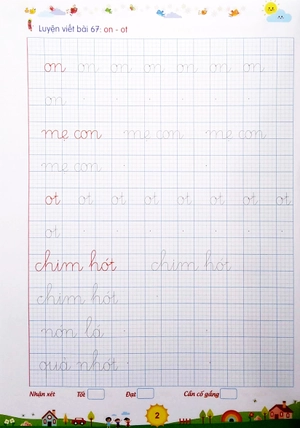 Luyện viết bài 67: on - ot
on on on on on on on
on
mẹ con mẹ con mẹ con
mẹ con
ot ot ot ot ot ot ot ot
ot
chim hót chim hót
chim hót
nón lá
quả nhót
Nhận xét Tốt Đạt Cần cố gắng
2